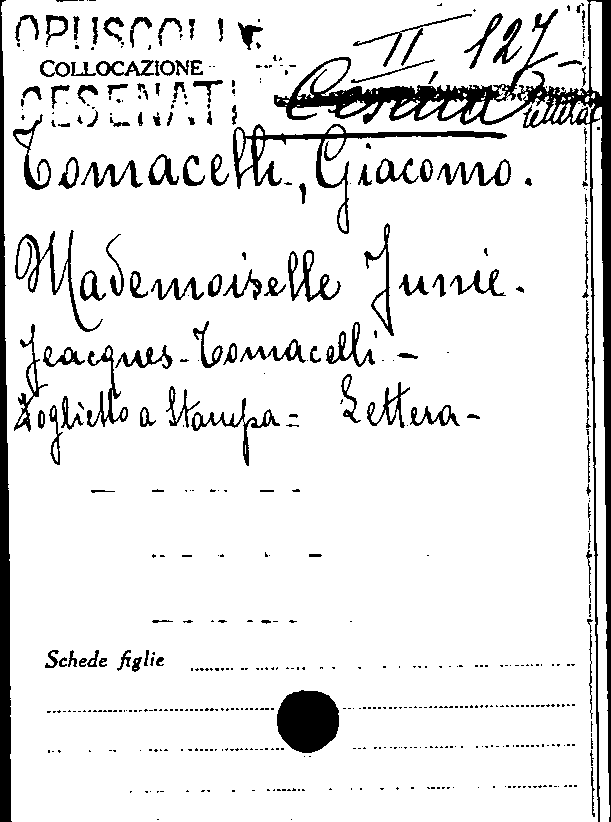 OPUSCOLI
II 127
COLLOCAZIONE
CESENATI
Cesena
Tomacelli, Giacomo.
Mademoiselle Junie.
Jeacques-Tomacelli -
Foglietto a Stampa = Lettera -
Schede figlie